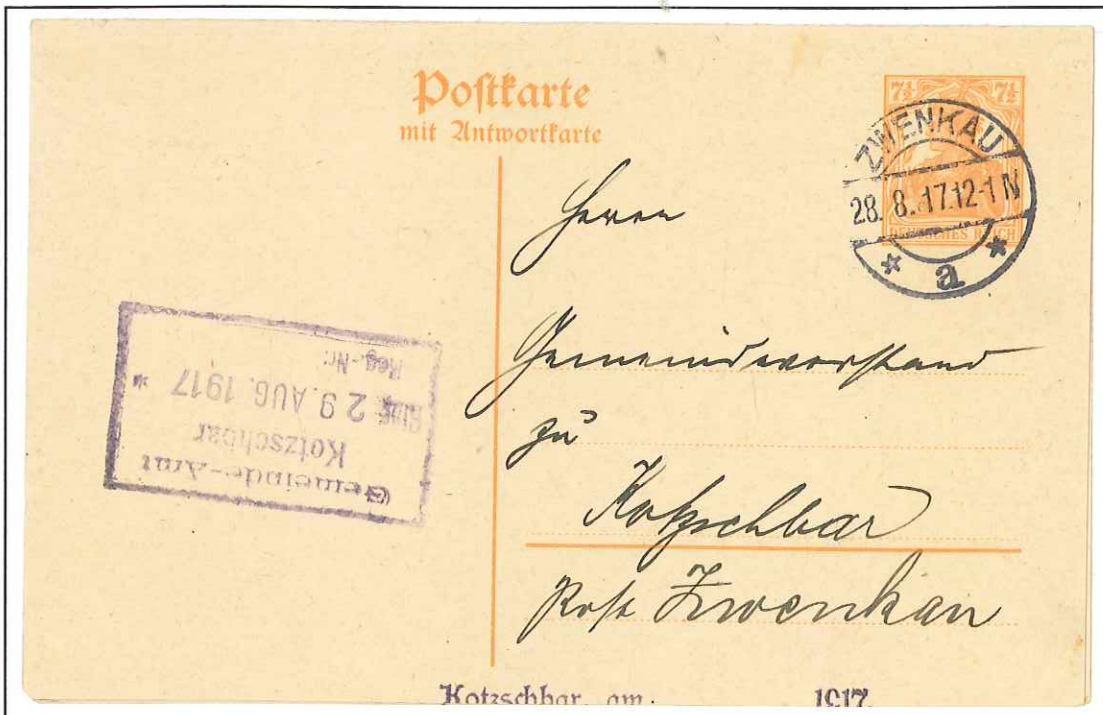 Postkarte
mit Antwortkarte
7½ 7½
DEUTSCHES REICH
ZWENKAU
28. 8. 17. 12-1 N
* a *
Herrn
Gemeindevorstand
zu
Kotzschbar
Post Zwenkau
Gemeinde-Amt
Kotzschbar
Eing. 29. AUG. 1917 *
Reg.-Nr.
Kotzschbar, am 1917.